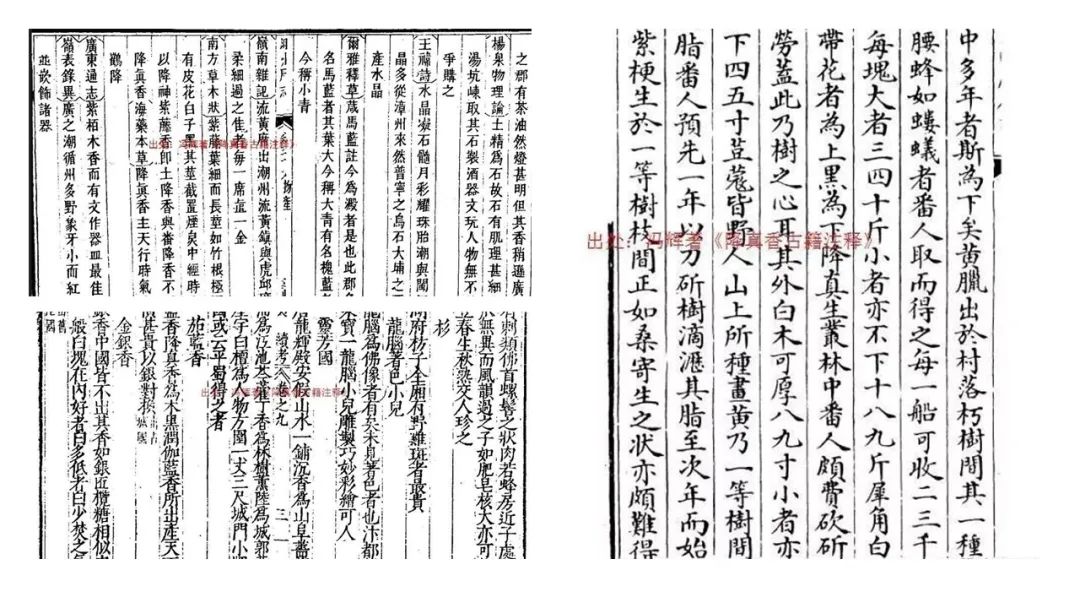 之郡有茶油然燈甚明但其香稍遜廣
楊泉物理論土精爲石故石有肌理甚細
湯坑峽取其石製酒器文玩人物無不
爭購之
王禕詩水晶凝石髓月彩耀珠胎潮與閩
晶多從漳州來然普寧之烏石大埔之
產水晶
爾雅釋草葴馬藍註今為澱者是也此郡
名馬藍者其葉大今稱大青有名槐藍
今稱小青
嶺南雜記流黃席出潮州流黃鎮與虎邱
柔細過之佳者每一席直一金
南方草木狀紫藤葉細而長莖如竹根極
有皮花白子黑其莖截置煙炱中經時
以降神紫藤香卽土降香與番降香不
降眞香海藥本草降眞香主天行時氣
鸛降
廣東通志紫栢木香而有文作器皿最佳
嶺表錄異廣之潮循州多野象牙小而紅
並嵌飾諸器
出处：冯辉著《降真香古籍注释》
有刺類佛首螺髻之狀肉若蜂房近子處
於無異而風韻過之子如肥皂核大亦可
春生秋熟交人珍之
杉
龍腦著色小兒
龍腦為佛像者有矣未見著色者也汴都
宋寶一龍腦小兒雕製巧妙彩繪可人
靈芳國
龍輝殿安假山水一鋪沉香為山阜薔
為江池苓藿丁香為林樹薰陸為城郭
續考 卷之九 三
生字曰檀為人物方圍一丈三尺城門小
或云平蜀得之者
茄藍香
藍香降真香為木黑潤伽藍香所出產天
甚貴以銀對換
金銀香
銀香中國皆不出其香如銀匠欖糖相似
般白塊在內好者白多低者白少焚之
出处：冯辉著《降真香古籍注释》
中多年者斯為下矣黃臘出於村落朽樹間其一種
腰蜂如螻蟻者番人取而得之每一船可收二三千
每塊大者三四十斤小者亦不下十八九斤犀角白
帶花者為上黑為下降真生叢林中番人頗費砍斫
勞蓋此乃樹之心耳其外白木可厚八九寸小者亦
下四五寸荳蔻皆野人山上所種畫黃乃一等樹間
脂番人預先一年以刀斫樹滴瀝其脂至次年而始
紫梗生於一等樹枝間正如桑寄生之狀亦頗難得
出处：冯辉著《降真香古籍注释》